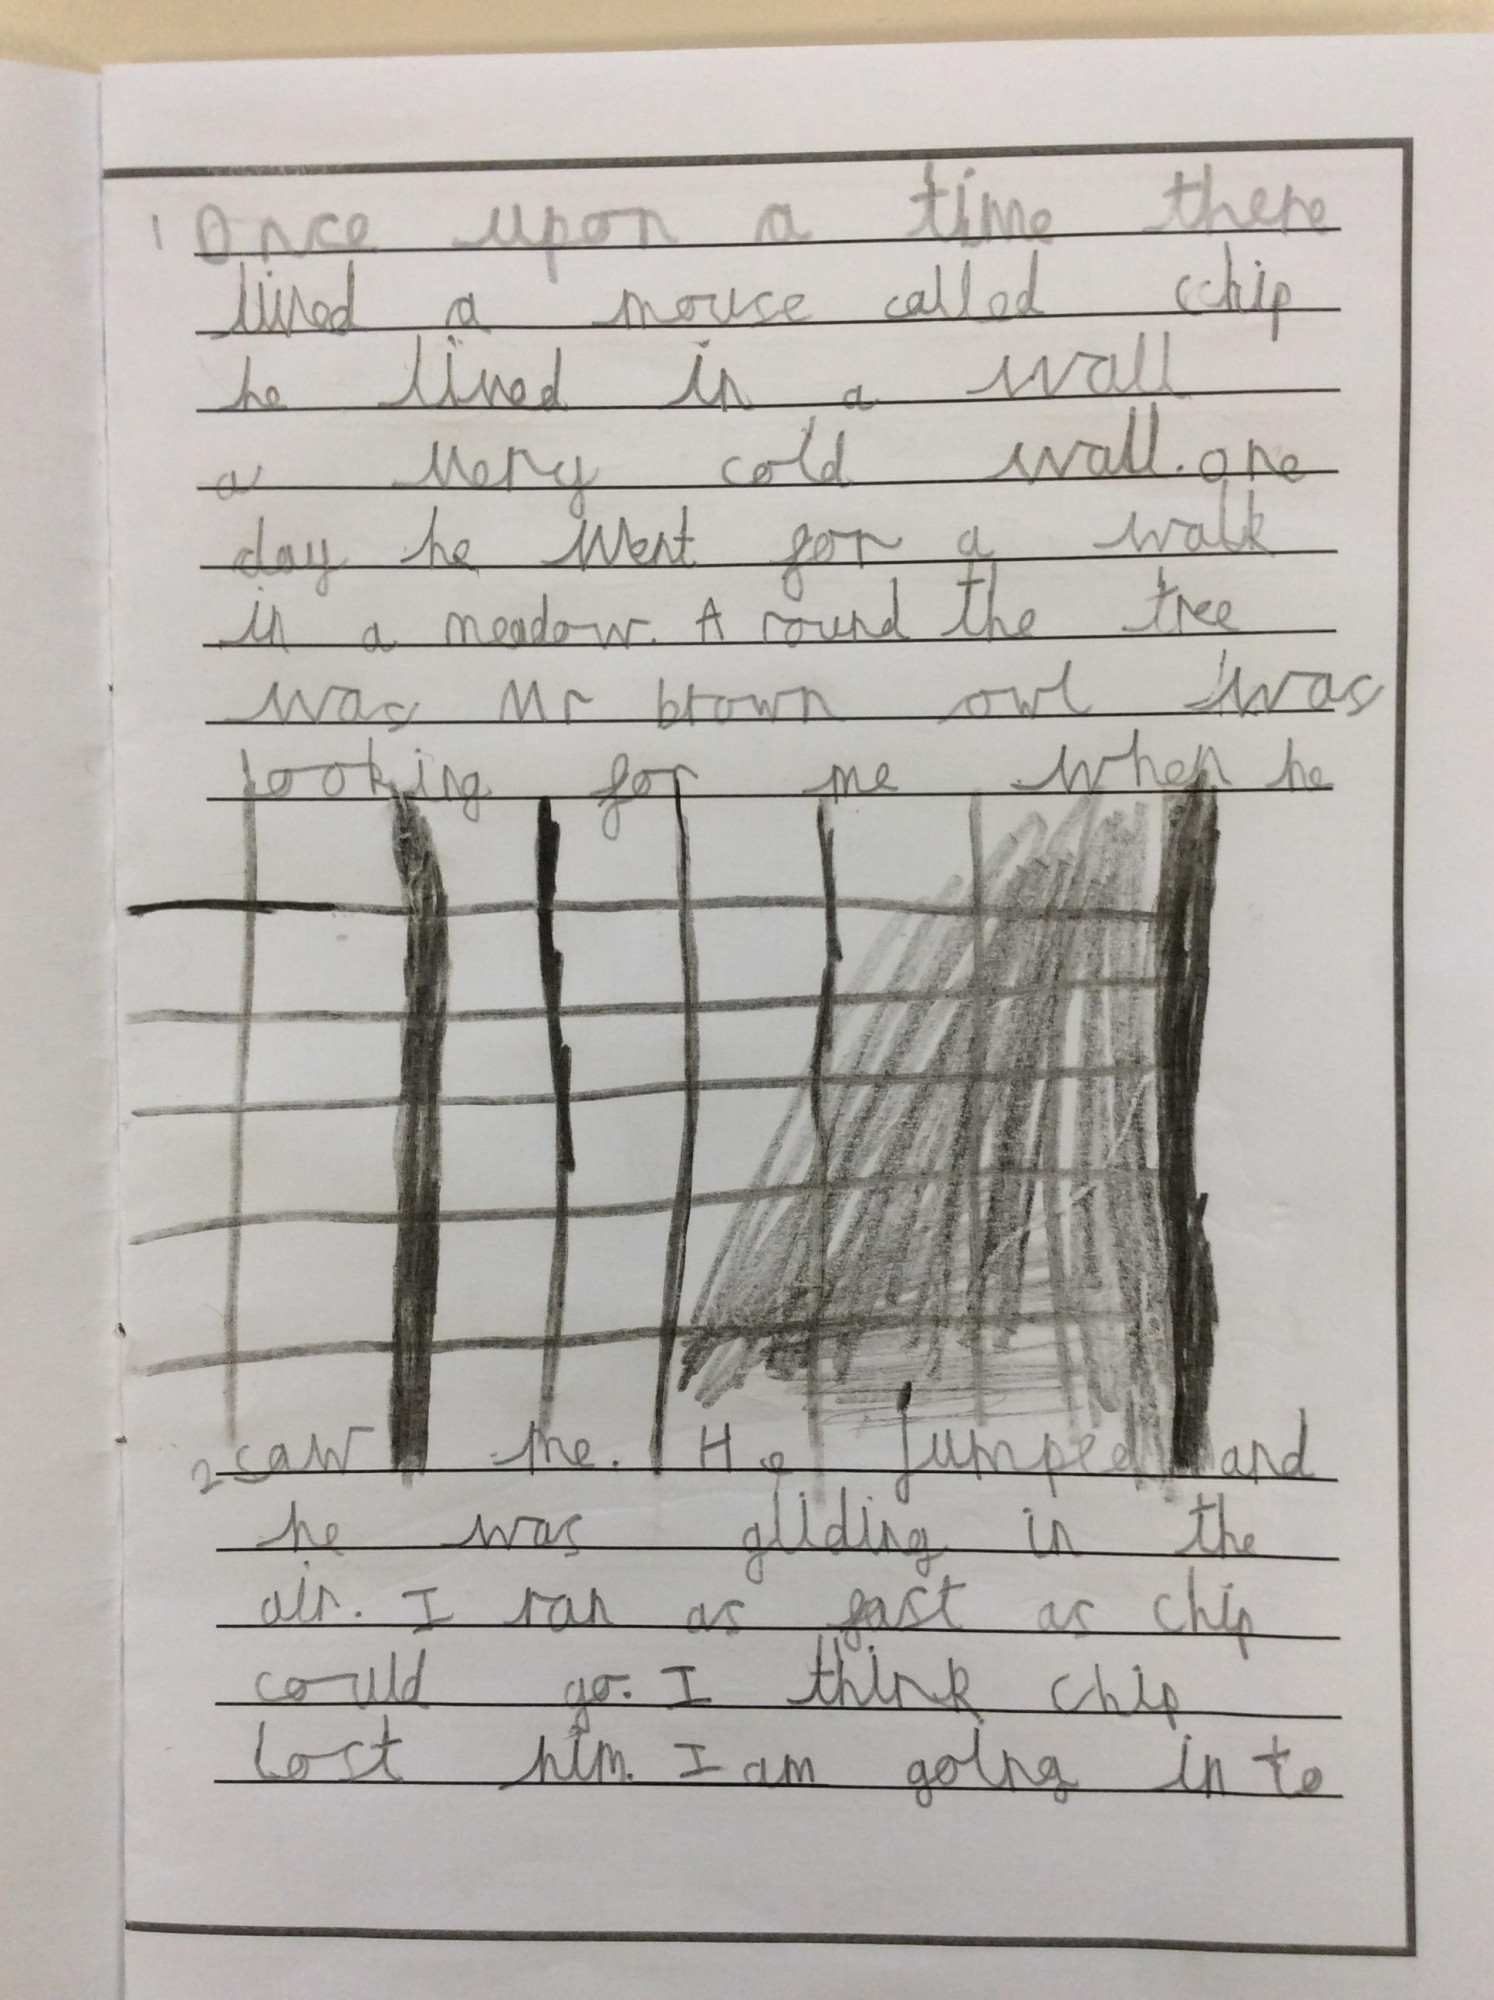 1 Once upon a time there
lived a mouse called cchip
he lived in a wall
a very cold wall. one
day he went for a walk
in a meadow. A round the tree
was Mr brown owl was
looking for me when he
2 saw me. He jumped and
he was gliding in the
air. I ran as fast as chip
could go. I think chip
lost him. I am going in to